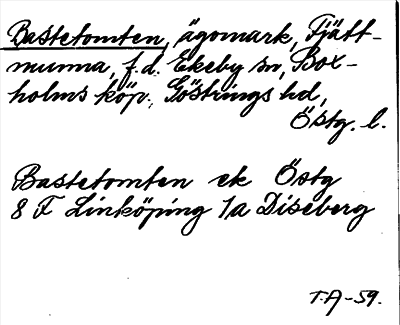 Bastetomten, ägomark, Tjätt-
munna, f.d. Ekeby sn, Box-
holms köp., Göstrings hd,
Östg. l.
Bastetomten ek Östg
8 F Linköping 1a Diseberg
T.A-59.